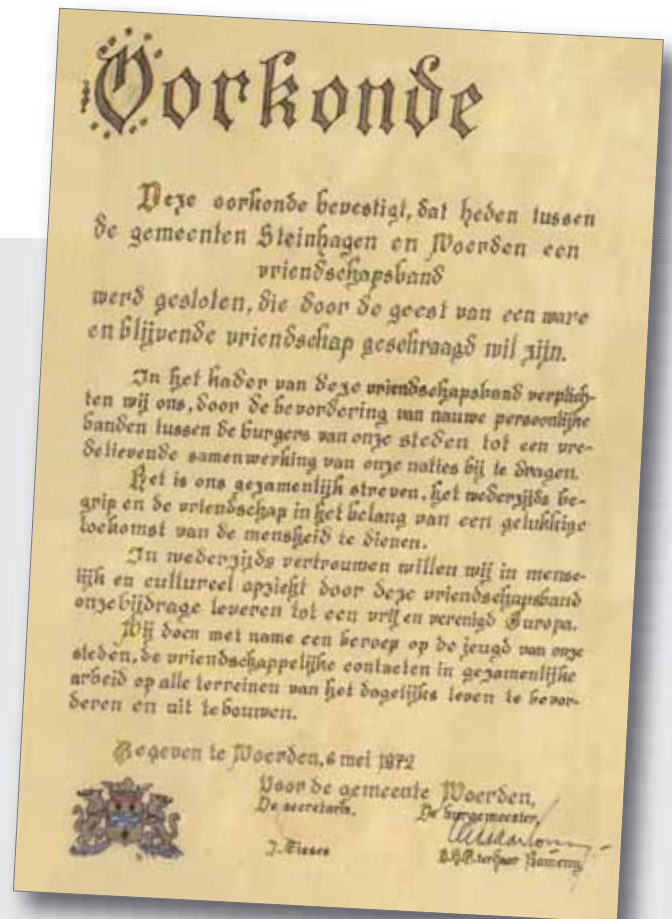 Oorkonde
Deze oorkonde bevestigt, dat heden tussen
de gemeenten Steinhagen en Woerden een
vriendschapsband
werd gesloten, die door de geest van een ware
en blijvende vriendschap geschraagd wil zijn.
In het kader van deze vriendschapsband verplich-
ten wij ons, door de bevordering van nauwe persoonlijke
banden tussen de burgers van onze steden tot een vre-
delievende samenwerking van onze naties bij te dragen.
Het is ons gezamenlijk streven, het wederzijds be-
grip en de vriendschap in het belang van een gelukkige
toekomst van de mensheid te dienen.
In wederzijds vertrouwen willen wij in mense-
lijk en cultureel opzicht door deze vriendschapsband
onze bijdrage leveren tot een vrij en verenigd Europa.
Wij doen met name een beroep op de jeugd van onze
steden, de vriendschappelijke contacten in gezamenlijke
arbeid op alle terreinen van het dagelijks leven te bevor-
deren en uit te bouwen.
Gegeven te Woerden, 6 mei 1972
Voor de gemeente Woerden,
De secretaris, De burgemeester,
J. Tieses B.H.P. ter Haar